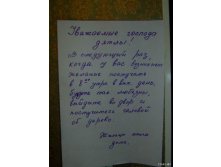 Уважаемые господа
дятлы!
В следующий раз,
когда у вас возникнет
желание постучать
в 8 утра в вых. день,
будьте так любезны,
выйдите во двор и
постучитесь головой
об дерево.
Жильцы этого
дома.